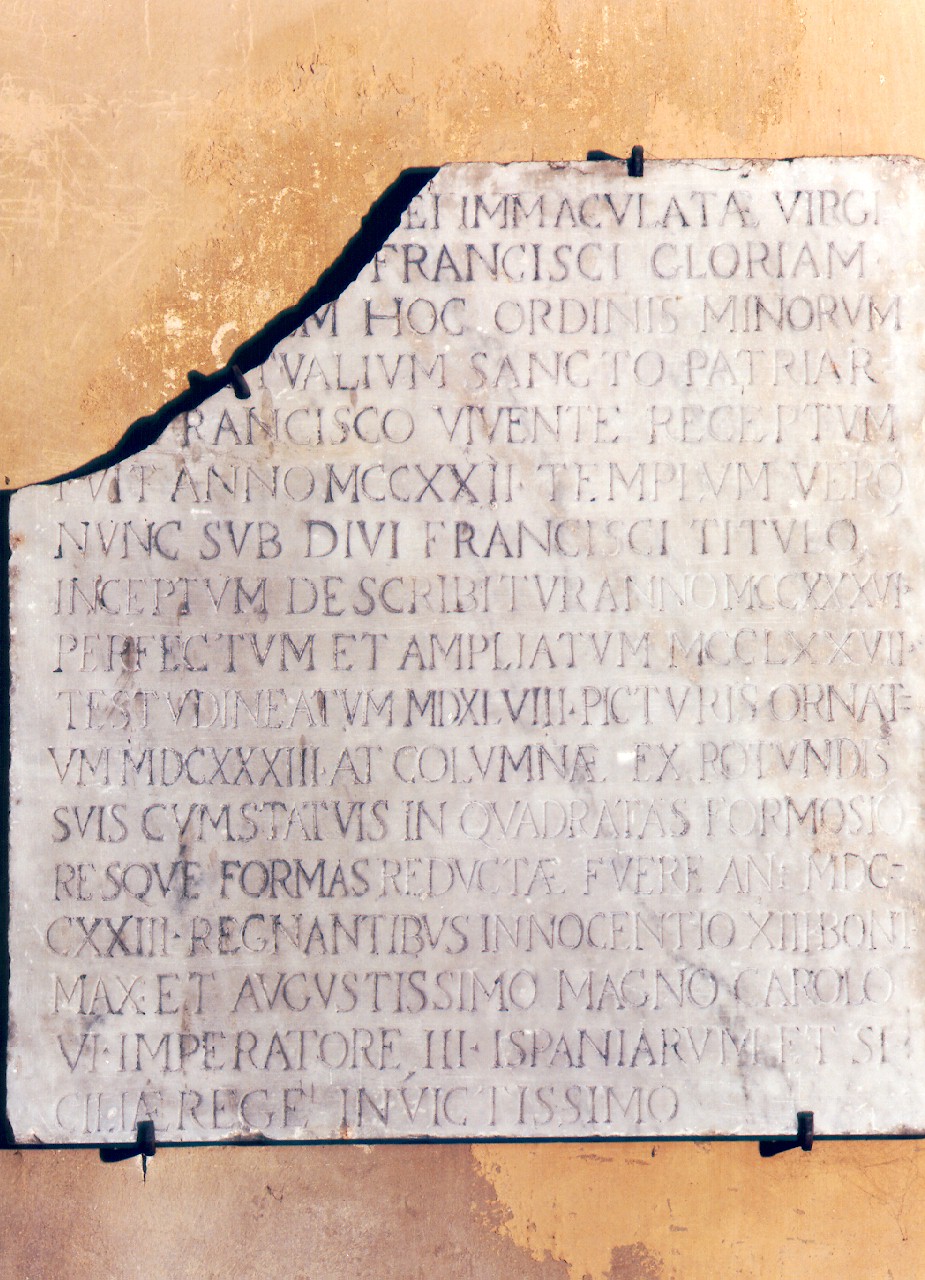 EI IMMACVLATÆ VIRGI
FRANCISCI GLORIAM
EM HOC ORDINIS MINORVM
TVALIVM SANCTO PATRIAR-
RANCISCO VIVENTE RECEPTVM
FVIT ANNO MCCXXII· TEMPLVM VERO
NVNC SVB DIVI FRANCISCI TITVLO
INCEPTVM DESCRIBITVR ANNO MCCXXXVI·
PERFECTVM ET AMPLIATVM MCCLXXVII·
TESTVDINEATVM MDXLVIII· PICTVRIS ORNAT=
VM MDCXXXIII· AT COLVMNÆ EX ROTVNDIS
SVIS CVM STATVIS IN QVADRATAS FORMOSIO
RESQVE FORMAS REDVCTÆ FVERE AN: MDC-
CXXIII· REGNANTIBVS INNOCENTIO XIII· PONT·
MAX: ET AVGVSTISSIMO MAGNO CAROLO
VI· IMPERATORE, III· ISPANIARVM, ET SI-
CILIÆ REGE INVICTISSIMO